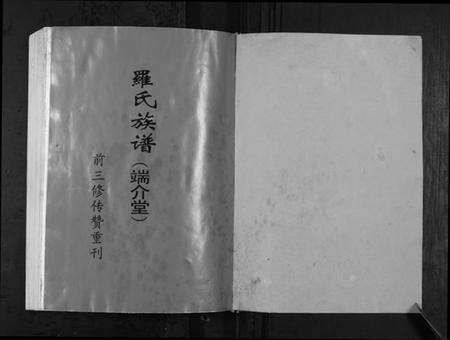 羅氏族谱（端介堂）
前三修传赞重刊